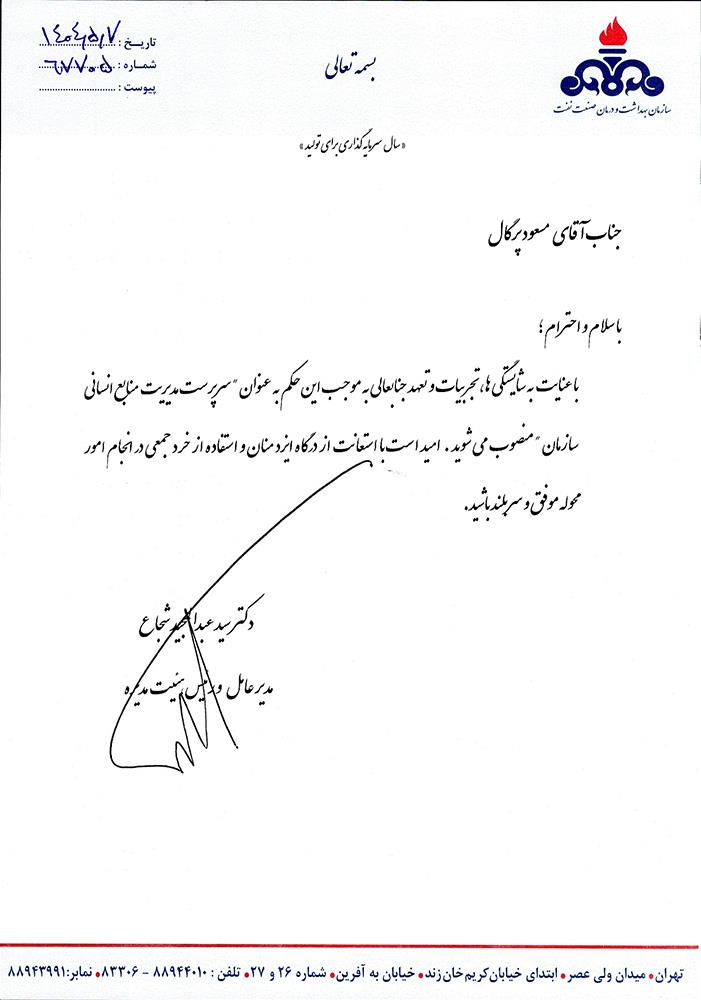 بسمه تعالی
تاریخ : ۱۴۰۴/۵/۷
شماره : ۶۷۷۰۵
پیوست :
سازمان بهداشت و درمان صنعت نفت
«سال سرمایه گذاری برای تولید»
جناب آقای مسعود پرگال
با سلام و احترام ؛
با عنایت به شایستگی ها، تجربیات و تعهد جنابعالی به موجب این حکم به عنوان "سرپرست مدیریت منابع انسانی
سازمان" منصوب می شوید . امید است با استعانت از درگاه ایزد منان و استفاده از خرد جمعی در انجام امور
محوله موفق و سربلند باشید.
دکتر سید عبدالمجید شجاع
مدیر عامل و رئیس هیئت مدیره
تهران • میدان ولی عصر • ابتدای خیابان کریم خان زند • خیابان به آفرین • شماره ۲۶ و ۲۷ • تلفن : ۸۸۹۴۴۰۱۰ - ۸۳۳۰۶ • نمابر: ۸۸۹۴۳۹۹۱